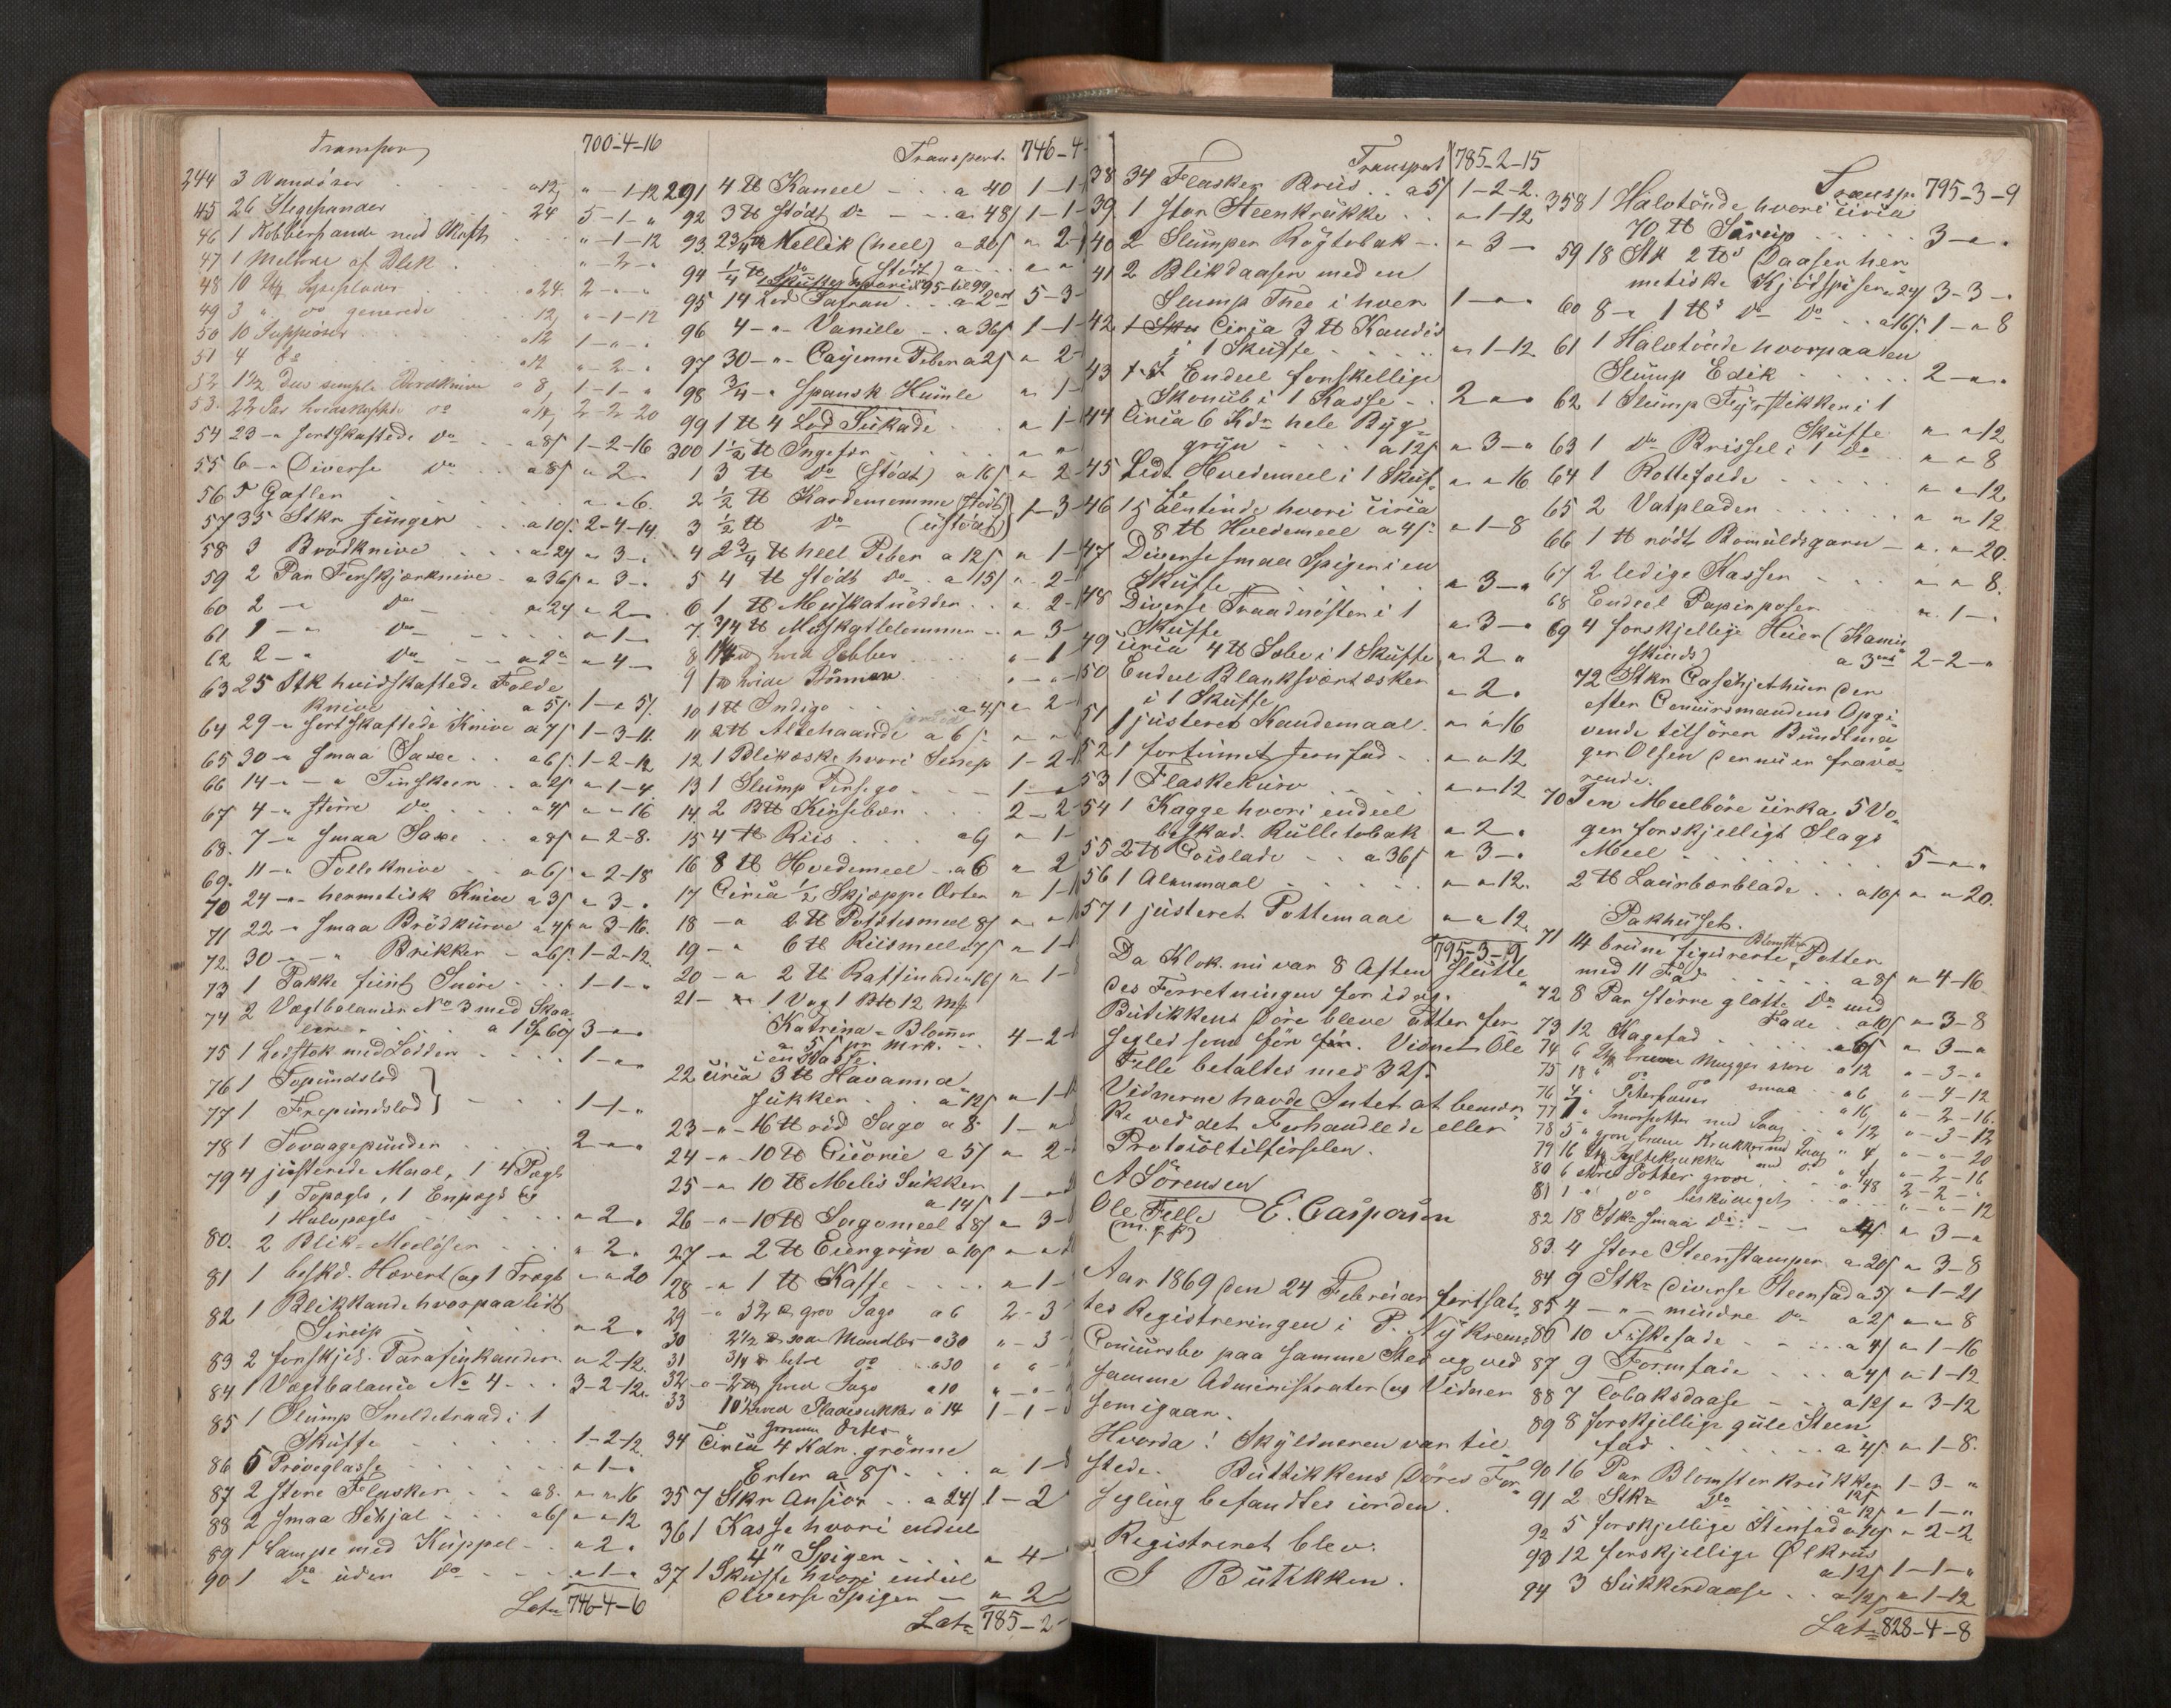 Transport 700-4-16
244 3 Vandöser a 12 " - 1-12
45 26 Stegepander 24 5-1- "
46 1 Kobberpande med Skaft " -1-12
47 1 af Blik " -2- "
48 10 a 24. 2- " - "
49 3 " do 12 " -1-12
50 10 a 12 1- " - "
51 4 do a 12 " -2- "
52 1½ Dus simple Bordknive a 8, 1-1- "
53. 22 Par hvidskaftede do 2-2-20
54 23 - " sortskaftede do a 8/ 1-2-16
55 6 - " Diverse do a 8/ " 2 - "
56 5 Gafler " - " 6.
57 35 Stkr Junger a 10/ 2-4-14
58 3 Brödknive a 24 " 3 - "
59 2 Par Forskjærknive - a 36/ " 3 - "
60 2 - " do a 24 " 2 - "
61 1 - " do " 1 - "
62 2 - " do " 4 - "
63 25 Stk hvidskaftede Folde
knive a 5/ 1- " 5/.
64 29 - " sortskaftede Knive a 7/ 1-3-11.
65 30 - " smaa Saxe a 6/. 1-2-12
66 14 - " - " Tinskeer a 2/ " 1-4.
67 4 - " större do a 4/ " - " 16
68. 7 - " smaa Saxe a 8/ " 2-8.
69. 11 - " Folleknive a 6/ " 2-18
70 24 - " - hermetisk Knive a 3/ " 3 - "
71 22 - " smaa Brödkurve a 4/ " 3-16.
72. 30 - " - " Brikker - a 6/. 1-2-12.
73 1 Pakke fiint Snöre 1-1- "
74 2 Vægtbalancer No 3 med Skaa
ler a 1 Sp 60/ 3 - " - "
75 1 Lodstok med Lodder 1 - " - "
76 1 Topundslod
77 1 Trepundslod } 1-1- "
78 1 Tovaagspunder 2 - " - "
79 4 justerede Maal, 1 4 Pægls
1 Topægls, 1 Enpægls og
1 Halvpægls " 2 - "
80. 2 Blik-Meelöser " 2 - "
81 1 beskd. Hævert og 1 Tragt " - " 20
82 1 Blikkande hvorpaa lidt
Sirup " 2 - "
83 2 forskjel. Parafinkander " 2-12.
84 1 Vægtbalance No 4 3-2-12.
85 1 Slump Sneldetraad i 1
Skuffe 1-2-12.
86 5 Pröveglasse " 1 - "
87 2 store Flasker a 8. " - " 16
88 2 smaa Schjal a 6/ " - " 12
89 1 Lampe med Kuppel " 2 - "
90 1 do uden do " 1 - "
Lat= 746-4-6
Transport. 746-4-
291 4 tt Kaneel a 40 1-1-
92 3 tt stödt do a 48/ 1-1-
93. 2¾ tt Nellik (heel) a 20/ " 2-
94 ¼ tt do (stödt) a " "
1 Skuffe hvori 95 til 99
95 14 Lod Safran a 2 ort 5-3-
96 4 - " - Vanille a 36/. 1-1-
97 30 - " - Cayenne Peber a 2/ " 2-
98 ¾ - " Spansk Humle " 1-
99 1 tt 4 Lod Sukade " 1-
300 1½ tt Ingefær " "
1 3 tt do (stödt) a 16/ " 2-
2 ½ tt Kardemomme (stödt)
3 ½ tt do (ustödt) } 1-3-
4 2¾ tt heel Peber a 12/ " 1-
5 4 tt stödt do a 15/ " 2-
6 1 tt Muskatnödder " 2-
7. ¾ tt Muskatblomme " 3-
8 1¼ tt hvid Pebber " -1
9 1 tt hvide Bönner " - "
10 1 tt Indigo a 4/ " 2-
11 2 tt Altehaande a 6/. " "
12 1 Blikæske hvori Senep 1-2-
13 1 Slump Persego 1- "
14. 2 Btt Kirsebær 2-2-
15 4 tt Riis a 9 " 1-
16 8 tt Hvedemeel a 6 " 2
17 Circa ½ Skjæppe Erter " 1-
18 - " 2 tt Potetesmeel 8/ " "
19 - " 6 tt Riismeel 7/ " 1-
20 - " 2 tt Raffinade 16/ " 1-
21 - " 1 Vog 1 Btt 12 Mk
Katrina-Blommer
a 5/ pr Mrk. 4-2-
i en Kasse.
22 circa 3 tt Havanna
Sukker a 12/ " 1-
23 - " - 16 tt röd Sago a 8 1- "
24 - " - 10 tt Cicorie a 5/ " 2-
25 - " 10 tt Melis Sukker
a 14/ 1- "
26 - " - 10 tt Sagomeel a 8/ " 3-
27 - " 2 tt Eiergryn a 10/ " "
28 - " 1 tt Kaffe " 1-
29 - " 32 tt grov Sago a 6 2-3
30 2½ tt Mandler a 30 " -3
31 3/4 tt do a 30 " "
32 - " - 2 tt hvid Sago a 10 " - "
33 10 tt hvid Pladesukker a 14 1-1-
34 Circa 4 Kdr. grönne
Erter a 8/ " 1-
35 7 Stkr Ansjos a 24/ 1-2
36 1 Kasse hvori endeel
4" Spiger " 4-
37 1 Skuffe hvori endeel
diverse Spiger " 2
Lat= 785-2-
Transport 785-2-15
38 34 Flasker Bruus a 5/ 1-2-2.
39 1 stor Steenkrukke " 1-12
40 2 Slumper Rögtobak " 3 - "
41 2 Blikdaaser med en
Slump Thee i hver 1 - " - "
42. Circa 3 tt Kandis
i 1 Skuffe " 1-12
43 Endeel forskellige
Skonub i 1 Kasse 2 - " "
44 Circa 6 Kdr hele Byg=
gryn a 12/ " 3 - "
45 Lidt Hvedemeel i 1 Skuf=
fe " - " 16
46 15 hvori circa
8 tt Hvedemeel a 4/. " 1-8
47 Diverse smaa Spiger i en
Skuffe " 3 - "
48 Diverse Traadnöster i 1
Skuffe " 3 - "
49 circa 4 tt Sæbe i 1 Skuffe " 2 "
50 Endeel Blanksværtæsker
i 1 Skuffe " 2 - "
51 1 justeret Kandemaal " - " 16
52 1 fortinnet Jernfad " - " 12
53 1 Flaskekurv " - " 12
54 1 Kagge hvori endeel
beskad. Rulletobak " 2 - "
55 2 tt Cocolade a 36/ " 3 - "
56 1 Alenmaal " - " 12.
57 1 justeret Pottemaal " - " 12.
795-3-9
Da Klok. nu var 8 Aften sluttedes
Forretningen for idag.
Butikkens Döre bleve atter for
seglet som för. Vidnet Ole
Felle betaltes med 32/.
Vidnerne havde Intet at bemær
ke ved det Forhandlede eller
Protocoltilförselen.
A Sörensen
Ole Felle E. Caspersen
(m. p. p.)
Aar 1869 den 24 Februar fortsat=
tes Registreringen i P. Nykreims
Concursbo paa samme Sted og ved
samme Administrator og Vidner
som igaar.
Hvorda! Skyldneren var til
stede. Buttikkens Döres For=
segling befandtes iorden.
Registreret blev:
I Butikken.
Transp. 795-3-9
358 1 Halvtönde hvori circa
70 tt Sirup 3 - " - "
59 18 Stk 2 tts Daaser her
metiske Kjödspiser a 24/ 3-3- "
60 8 - " 1 tts do do a 16/. 1- " 8
61 1 Halvtönde hvorpaa en
Slump Edik 2 - " - "
62 1 Slump Fyrstikker i 1
Skuffe " - " 12
63 1 do Brissel i 1 do " - " 8
64 1 Rottefælde " - " 12
65 2 Vatplader " - " 12
66 1 tt rödt Bomuldsgarn " - " 20.
67 2 ledige Kasser " - " 8.
68 Endeel Papirposer " 1 - "
69 4 forskjellige Huer (Kanin
skind) a 3 ort 2-2- "
12 Stkr Caschjethuer der
efter Concursmandens Opgi=
vende tilhörer Bundtma=
ger Olsen der nu er fravæ=
rende.
70 Ien Meelböre cirka 5 Vo=
ger forskjelligt Slags
Meel 5 - " - "
2 tt Laurbærblade a 10/ " - " 20.
Pakhuset.
71 14 brune figurerte Blomster Potter
med 11 Fad a 8/ " 4-16
72 8 Par större glatte do med
Fade a 10/ " 3-8
73 12 Kagefad a 6/ " 3 - "
74 6 Stk brune Mugger store a 12 " -3- "
75 18 " do do smaa a 6 " -4-12
76 4 " Peterpanner a 16 " -2-16.
77 7 " Smörpotter med Laag " 12 " -3-12
78 5 " grove brune Krukker med Laag " 4 " - " -20
79 16 Stk Syltekrukker med do " 4 " -2-16
80 6 större Potter grove a 48 2-2- "
81 1 " do beskadiget " - " -12
82 18 Stkr smaa do a 4/. " 3 - "
83. 4 store Steenstamper a 20/ " 3-8
84 9 Stkr diverse Steenfad a 5/ " 1-21
85 4 - " - mindre do a 2/ " - " 8
86 10 Fiskefade a 4/ " 1-16
87 9 Formfade a 4/ " 1-12
88 7 Tobaksdaase a 12/ " 3-12
89 8 forskjellige gule Steen
fad a 4/. " 1-8.
90 16 Par Blomsterkrukker 1-3- "
91 2 Stkr do a 12/ " 1 - "
92 5 forskjellige Stenfad a 10/ " 2-2
93 12 forskjellige Ölkrus
a 12/ 1-1- "
94 3 Sukkerdaase a 12/ " 1-12
Lat= 828-4-8